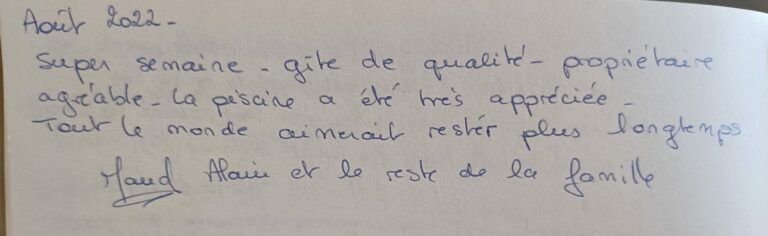 Août 2022 -
Super semaine - gîte de qualité - propriétaire
agréable - La piscine a été très appréciée -
Tout le monde aimerait rester plus longtemps
Maud Alain et le reste de la famille